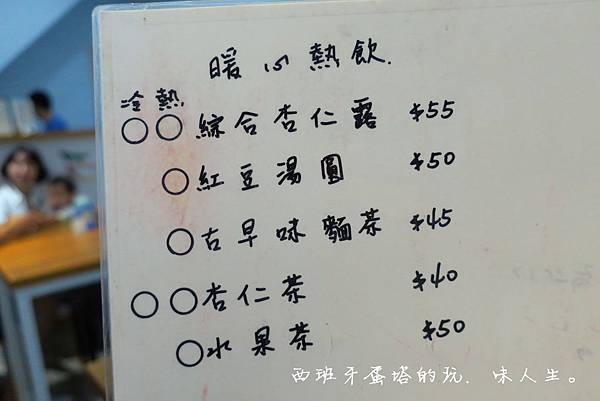 暖心熱飲.
冷 熱
○○綜合杏仁露 $55
○紅豆湯圓 $50
○古早味麵茶 $45
○○杏仁茶 $40
○水果茶 $50
西班牙蛋塔的玩．味人生。